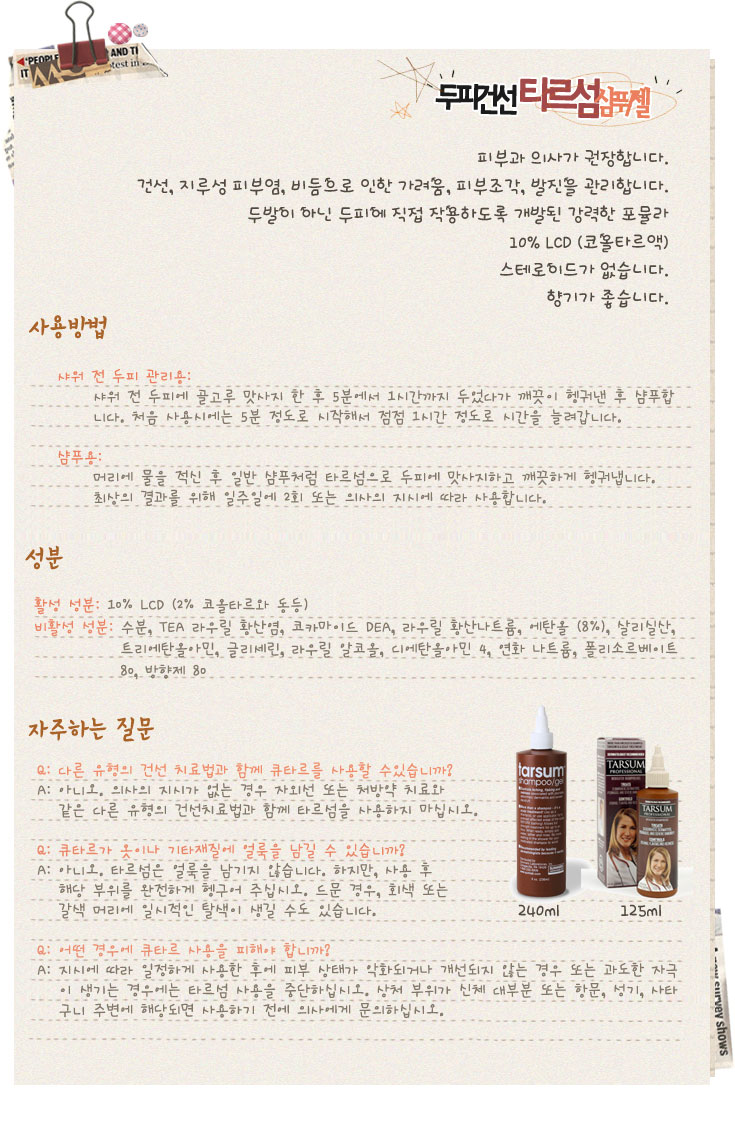 "PEOPLE
AND TH
IT
두피건선 타르섬 샴푸젤
피부과 의사가 권장합니다.
건선, 지루성 피부염, 비듬으로 인한 가려움, 피부조각, 발진을 관리합니다.
두발이 아닌 두피에 직접 작용하도록 개발된 강력한 포뮬라
10% LCD (코올타르액)
스테로이드가 없습니다.
향기가 좋습니다.
사용방법
샤워 전 두피 관리용:
샤워 전 두피에 골고루 맛사지 한 후 5분에서 1시간까지 두었다가 깨끗이 헹궈낸 후 샴푸합
니다. 처음 사용시에는 5분 정도로 시작해서 점점 1시간 정도로 시간을 늘려갑니다.
샴푸용:
머리에 물을 적신 후 일반 샴푸처럼 타르섬으로 두피에 맛사지하고 깨끗하게 헹궈냅니다.
최상의 결과를 위해 일주일에 2회 또는 의사의 지시에 따라 사용합니다.
성분
활성 성분: 10% LCD (2% 코올타르와 동등)
비활성 성분: 수분, TEA 라우릴 황산염, 코카마이드 DEA, 라우릴 황산나트륨, 에탄올 (8%), 살리실산,
트리에탄올아민, 글리세린, 라우릴 알코올, 디에탄올아민 4, 연화 나트륨, 폴리소르베이트
80, 방향제 80
자주하는 질문
Q: 다른 유형의 건선 치료법과 함께 큐타르를 사용할 수있습니까?
A: 아니오. 의사의 지시가 없는 경우 자외선 또는 처방약 치료와
같은 다른 유형의 건선치료법과 함께 타르섬을 사용하지 마십시오.
Q: 큐타르가 옷이나 기타재질에 얼룩을 남길 수 있습니까?
A: 아니오. 타르섬은 얼룩을 남기지 않습니다. 하지만, 사용 후
해당 부위를 완전하게 헹구어 주십시오. 드문 경우, 회색 또는
갈색 머리에 일시적인 탈색이 생길 수도 있습니다.
tarsum
shampoo/gel
TARSUM
PROFESSIONAL
TARSUM
PROFESSIONAL
240ml
125ml
Q: 어떤 경우에 큐타르 사용을 피해야 합니까?
A: 지시에 따라 일정하게 사용한 후에 피부 상태가 악화되거나 개선되지 않는 경우 또는 과도한 자극
이 생기는 경우에는 타르섬 사용을 중단하십시오. 상처 부위가 신체 대부분 또는 항문, 성기, 사타
구니 주변에 해당되면 사용하기 전에 의사에게 문의하십시오.
survey shows